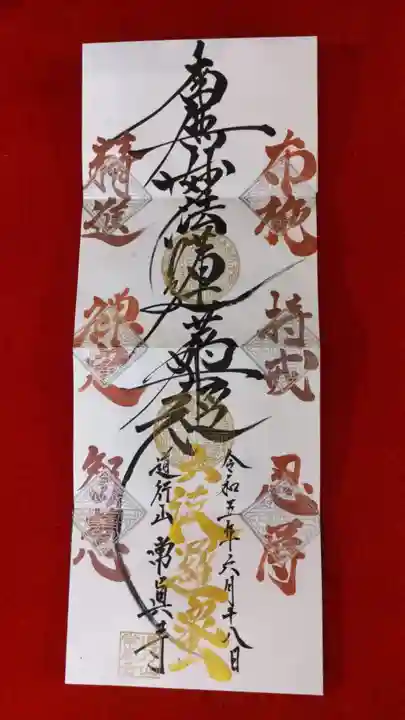 布施
持戒
忍辱
南無妙法蓮華経
精進
禅定
智慧
令和五年六月十八日
道行山 常眞寺